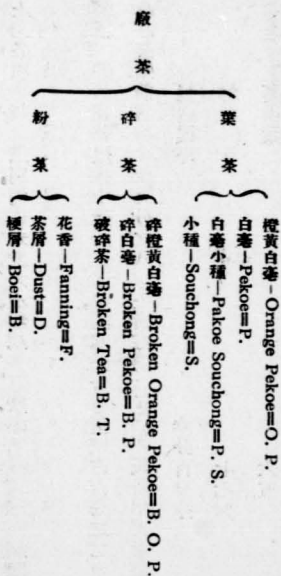 廠茶
葉茶
橙黃白毫—Orange Pekoe=O. P.
白毫—Pekoe=P.
白毫小種—Pakoe Souchong=P. S.
小種—Souchong=S.
碎茶
碎橙黃白毫—Broken Orange Pekoe=B. O. P.
碎白毫—Broken Pekoe=B. P.
破碎茶—Broken Tea=B. T.
粉茶
花香—Fanning=F.
茶屑—Dust=D.
梗屑—Boei=B.